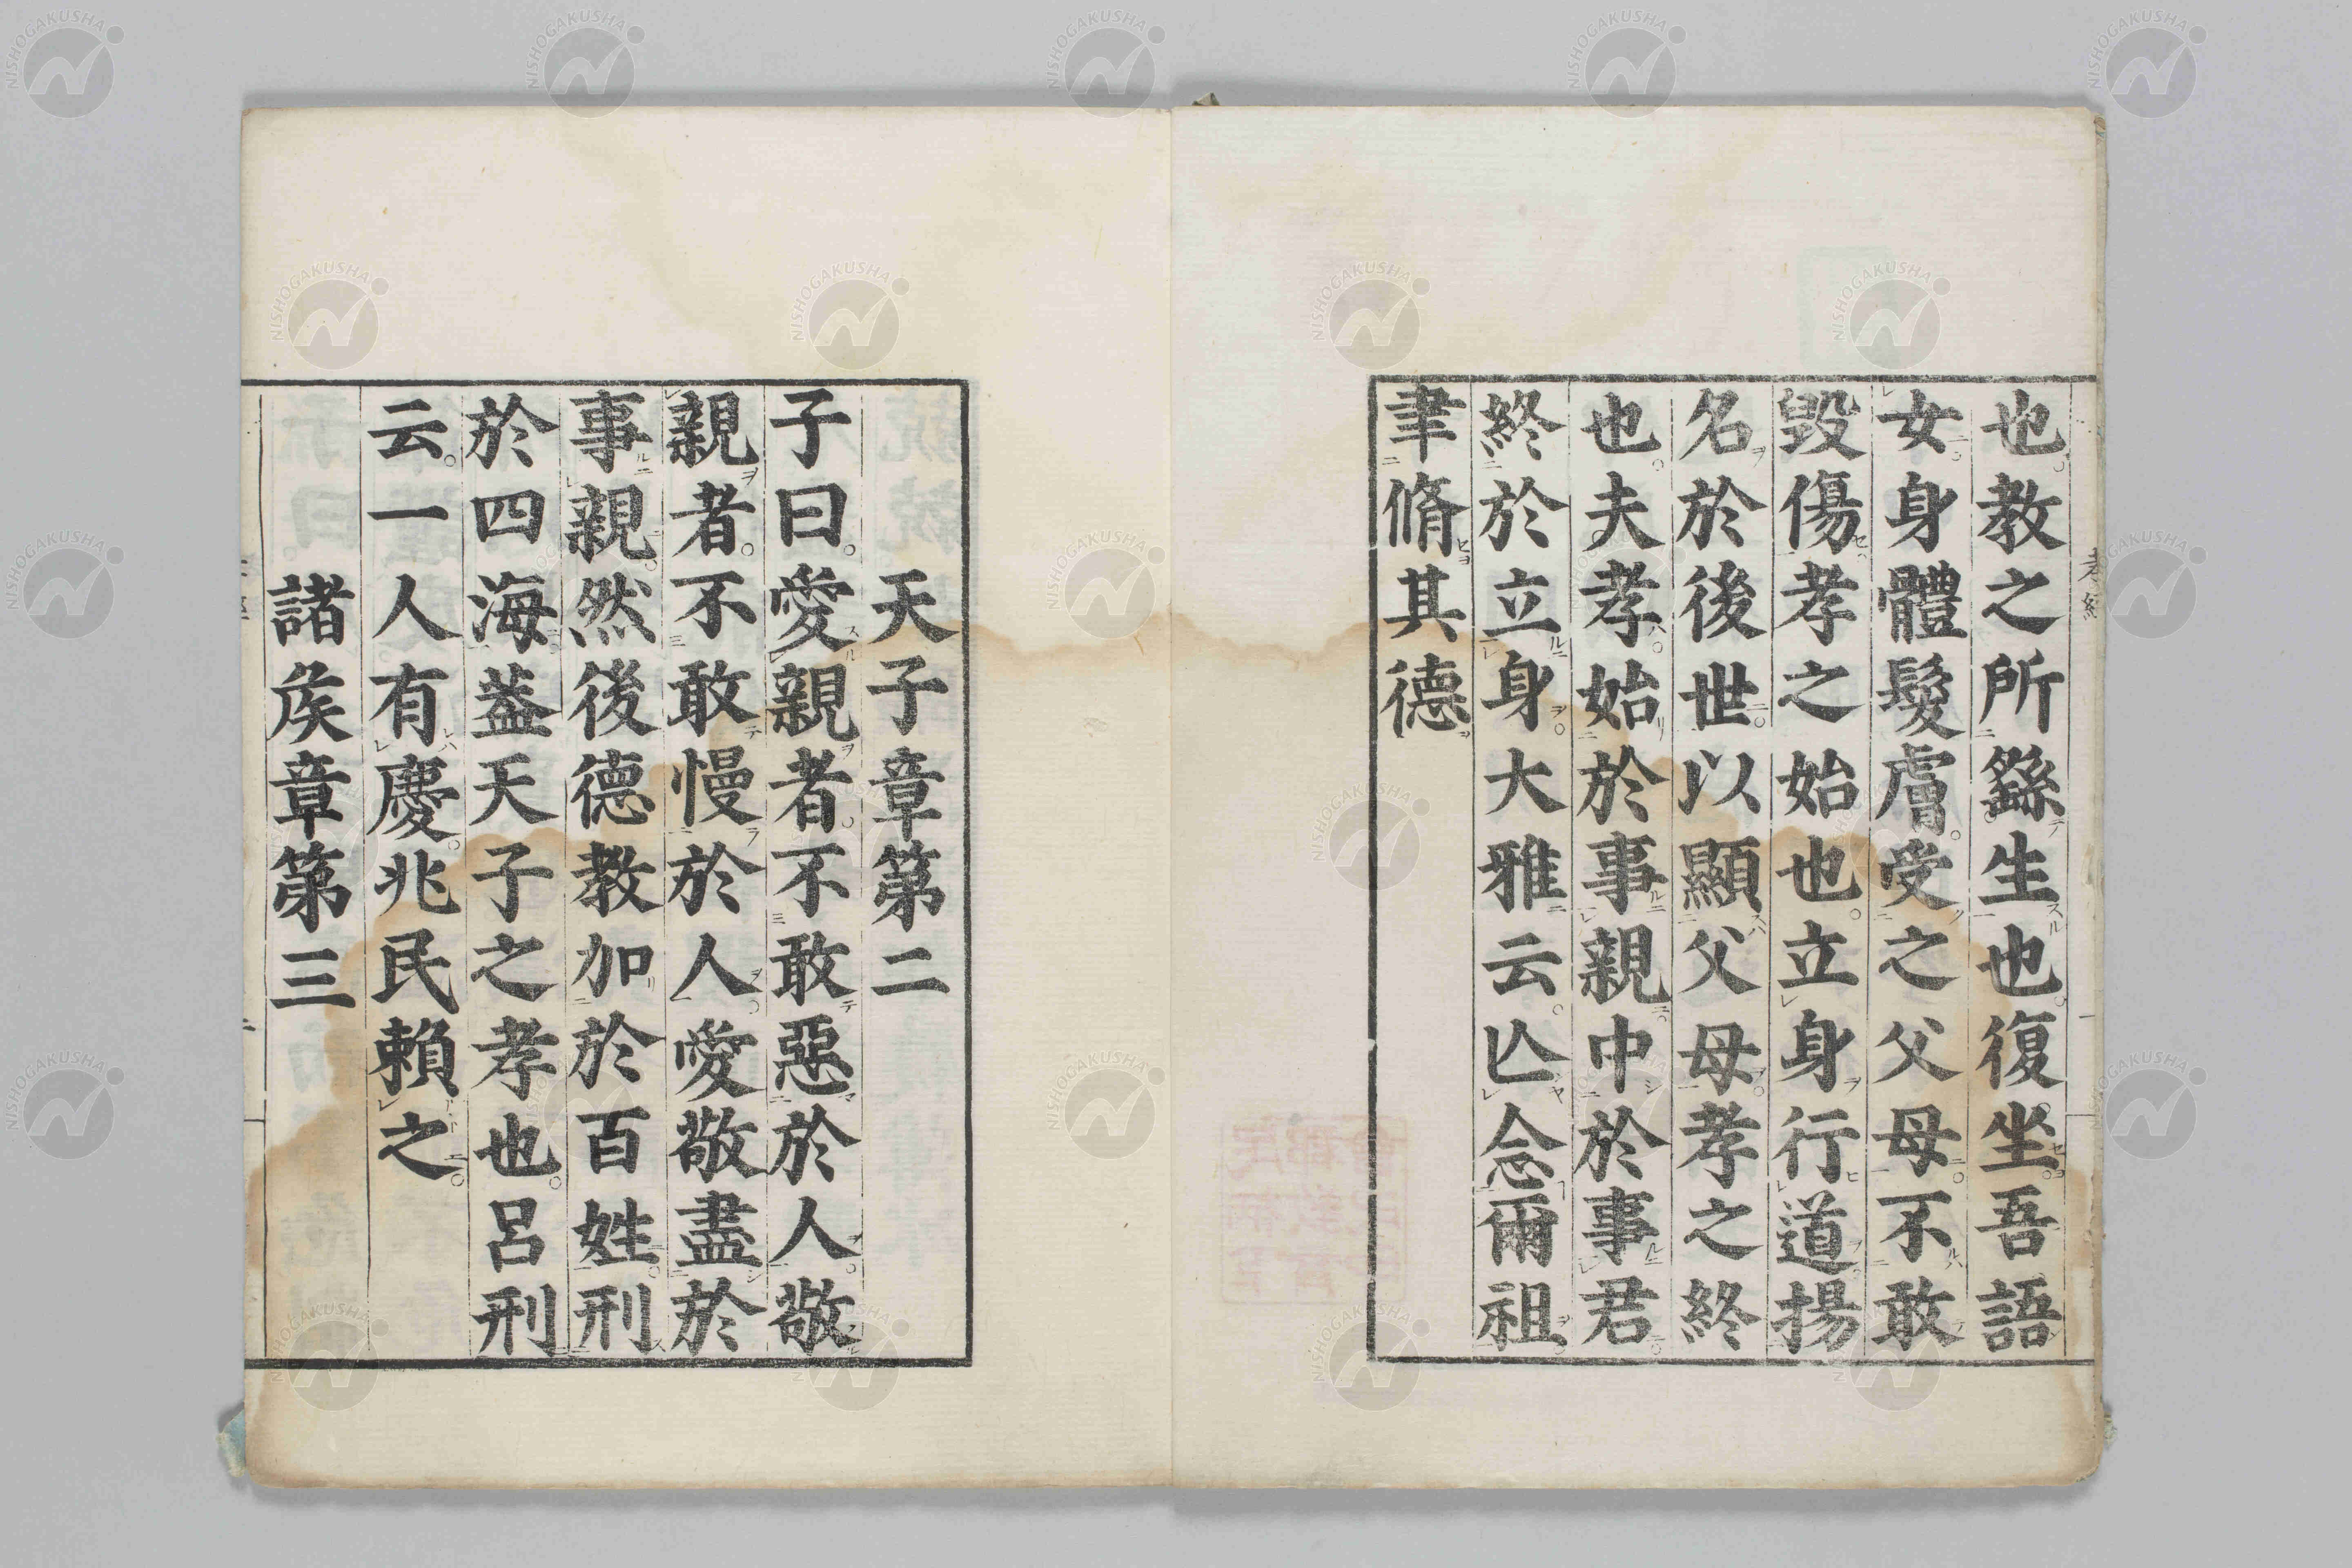 也教之所繇生也復坐吾語
女身體髮膚受之父母不敢
毀傷孝之始也立身行道揚
名於後世以顯父母孝之終
也夫孝始於事親中於事君
終於立身大雅云亾念爾祖
聿脩其德
天子章第二
子曰愛親者不敢惡於人敬
親者不敢慢於人愛敬盡於
事親然後德教加於百姓刑
於四海葢天子之孝也呂刑
云一人有慶兆民賴之
諸矦章第三
NISHOGAKUSHA